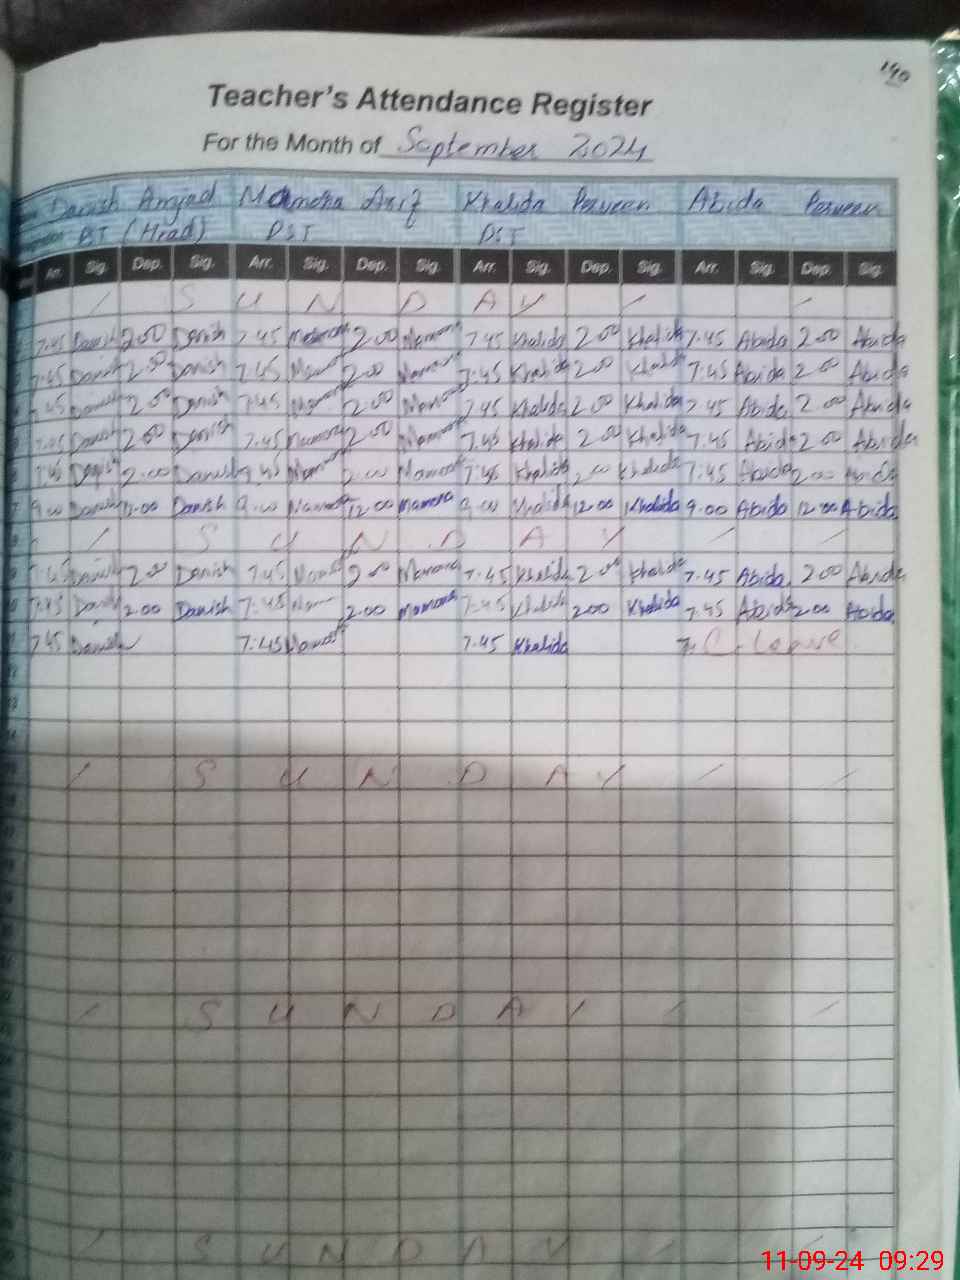 190
Teacher's Attendance Register
For the Month of September 2024
Danish Amjad Mamona Arif Khalida Perveen Abida Perveen
PST (Head) PST PST
Arr. Sig. Dep. Sig. Arr. Sig. Dep. Sig. Arr. Sig. Dep. Sig. Arr. Sig. Dep. Sig.
/ S U N D A Y / /
7:45 Danish 2:00 Danish 7:45 Mamona 2:00 Mamona 7:45 Khalida 2:00 Khalida 7:45 Abida 2:00 Abida
7:45 Danish 2:00 Danish 7:45 Mamona 2:00 Mamona 7:45 Khalida 2:00 Khalida 7:45 Abida 2:00 Abida
7:45 Danish 2:00 Danish 7:45 Mamona 2:00 Mamona 7:45 Khalida 2:00 Khalida 7:45 Abida 2:00 Abida
7:45 Danish 2:00 Danish 7:45 Mamona 2:00 Mamona 7:45 Khalida 2:00 Khalida 7:45 Abida 2:00 Abida
7:45 Danish 2:00 Danish 7:45 Mamona 2:00 Mamona 7:45 Khalida 2:00 Khalida 7:45 Abida 2:00 Abida
9:00 Danish 12:00 Danish 9:00 Mamona 12:00 Mamona 9:00 Khalida 12:00 Khalida 9:00 Abida 12:00 Abida
/ S U N D A Y / /
7:45 Danish 2:00 Danish 7:45 Mamona 2:00 Mamona 7:45 Khalida 2:00 Khalida 7:45 Abida 2:00 Abida
7:45 Danish 2:00 Danish 7:45 Mamona 2:00 Mamona 7:45 Khalida 2:00 Khalida 7:45 Abida 2:00 Abida
7:45 Danish 7:45 Mamona 7:45 Khalida 7: C. Leave
/ S U N D A Y / /
/ S U N D A Y / /
/ S U N D A Y / /
11-09-24 09:29